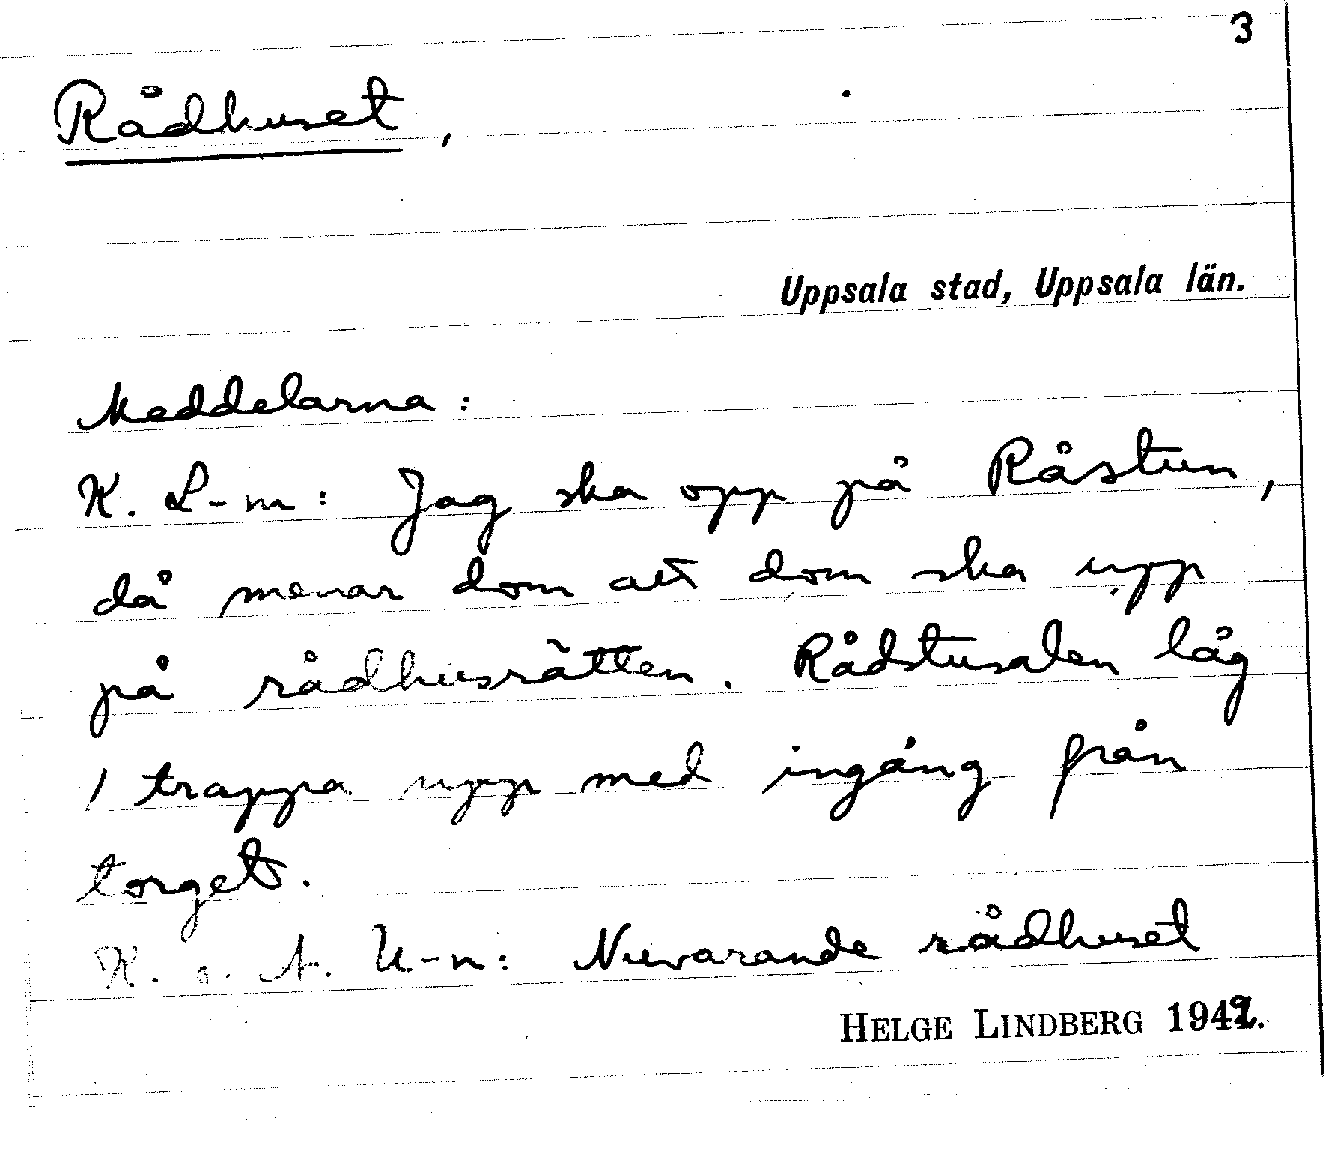 3
Rådhuset,
Uppsala stad, Uppsala län.
Meddelarna:
K. L-m: Jag ska opp på Råstun,
då menar dom att dom ska upp
på rådhusrätten. Rådstusalen låg
1 trappa upp med ingång från
torget.
K. o. A. U-n: Nuvarande rådhuset
HELGE LINDBERG 194